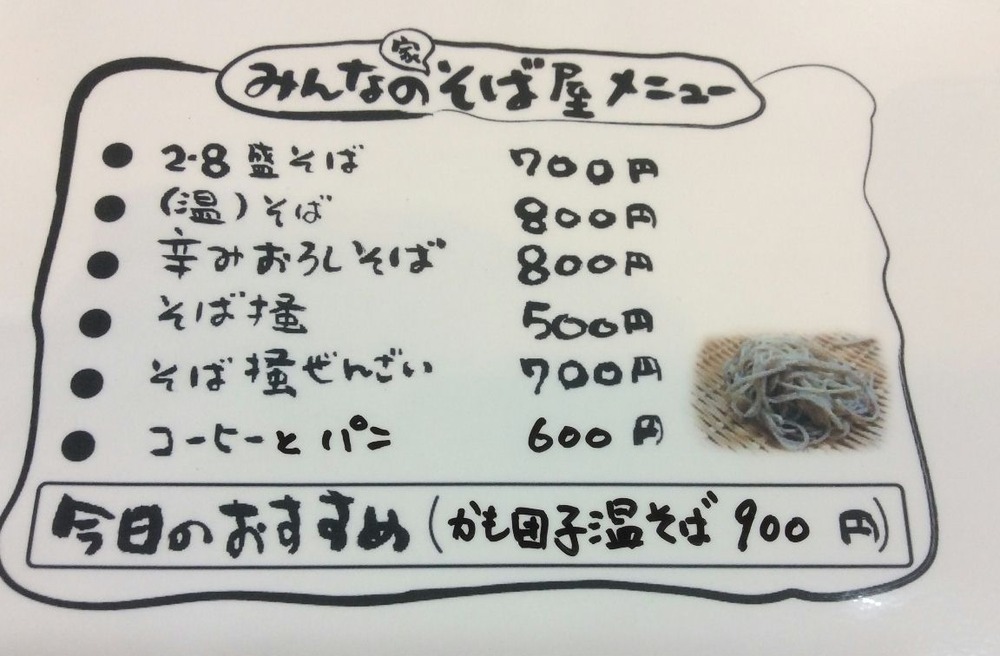 みんなの家そば屋メニュー
● 2・8盛そば 700円
● (温)そば 800円
● 辛みおろしそば 800円
● そば掻 500円
● そば掻ぜんざい 700円
● コーヒーとパン 600円
今日のおすすめ(かも団子温そば 900円)